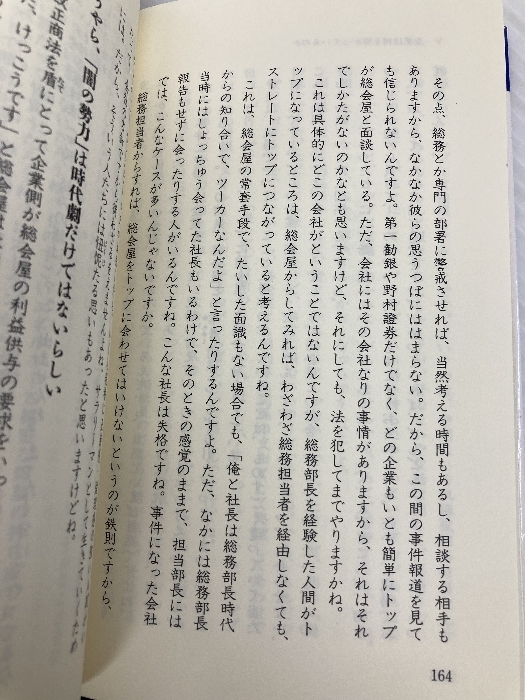 その点、総務とか専門の部署に警戒させれば、当然考える時間もあるし、相談する相手も
ありますから、なかなか彼らの思うつぼにははまらない。だから、この間の事件報道を見て
も信じられないんですよ。第一勧銀や野村證券だけでなく、どの企業もいとも簡単にトップ
が総会屋と面談している。ただ、会社にはその会社なりの事情がありますから、それはそれ
でしかたがないのかなとも思いますけど、それにしても、法を犯してまでやりますかね。
これは具体的にどこの会社がということではないんですが、総務部長を経験した人間がト
ップになっているところは、総会屋からしてみれば、わざわざ総務担当者を経由しなくても、
ストレートにトップにつながっていると考えるんですね。
これは、総会屋の常套手段で、たいした面識もない場合でも、「俺と社長は総務部長時代
からの知り合いで、ツーカーなんだよ」と言ったりするんですよ。ただ、なかには総務部長
当時にはしょっちゅう会ってた社長もいるわけで、そのときの感覚のままで、担当部長には
報告もせずに会ったりする人がいるんですね。こんな社長は失格ですね。事件になった会社
では、こんなケースが多いんじゃないですか。
総務担当者からすれば、総会屋をトップに会わせてはいけないというのが鉄則ですから、
サラリーマンとして
人たちには忸怩たる思いもあったと思いますけどね。
うやら、「闇の勢力」は時代劇だけではないらしい
改正商法を盾にとって企業側が総会屋の利益供与の要求を
けっこうです」と総会屋
164